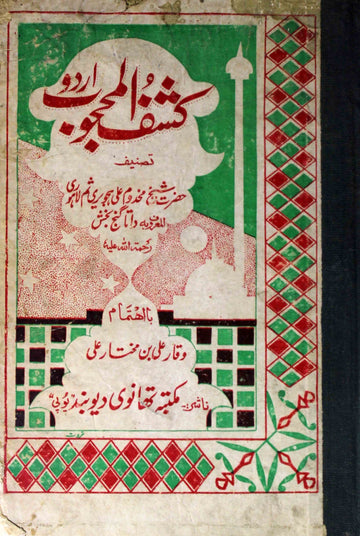 کشف المحجوب اردو
تصنیف
حضرت شیخ مخدوم علی ہجویری ثم لاہوری
المعروف بہ داتا گنج بخش
رحمۃ اللہ علیہ
باہتمام
وقار علی بن مختار علی
ناشر: مکتبہ تھانوی دیوبند "یوپی"